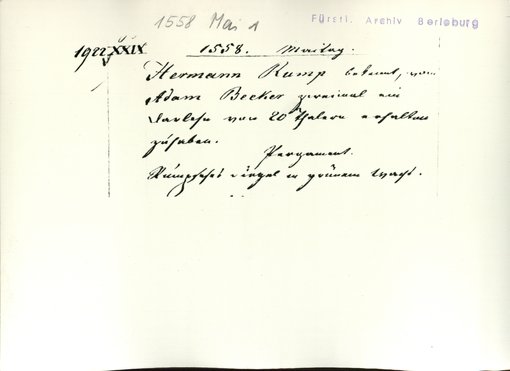 1558 Mai 1
Fürstl. Archiv Berleburg
1922 XXIX 1558. Maitag.
Hermann Rump bekennt, von
Adam Becker zweimal ein
Darlehn von 20 Thalern erhalten
zuhaben.
Pergament.
Rumpsches Siegel in grünem Wachs.